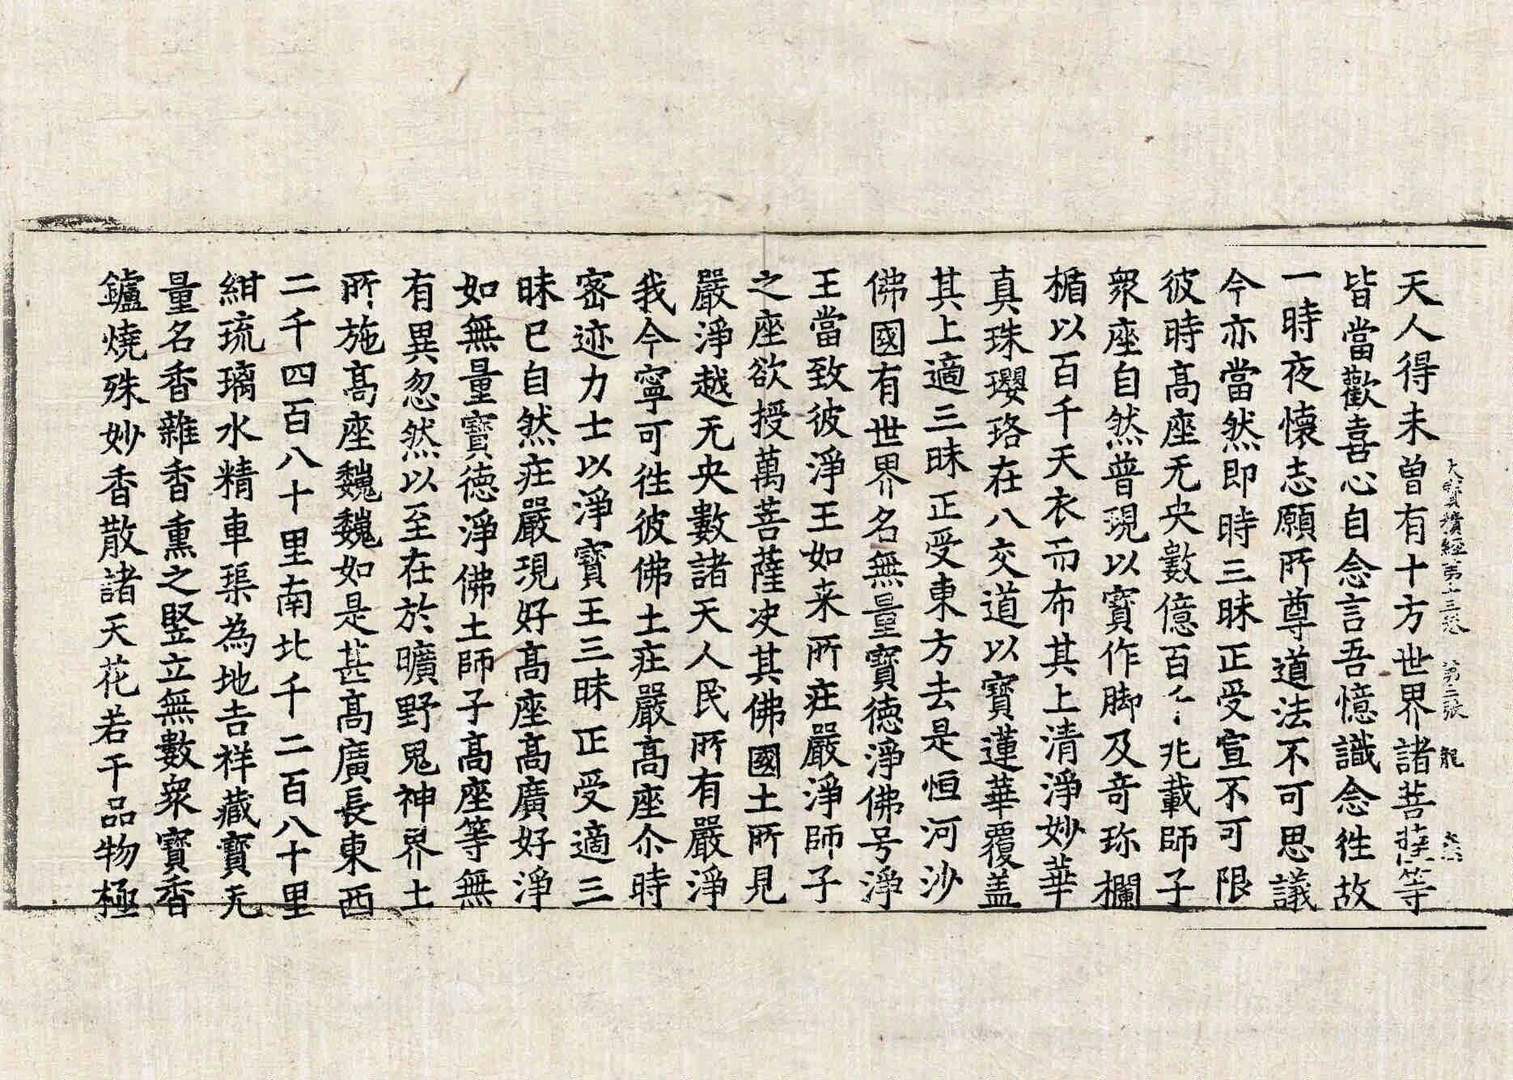 天人得未曾有十方世界諸菩薩等
大寶積經第十三卷 第二張 龍
皆當歡喜心自念言吾憶識念徃故
一時夜懷志願所尊道法不可思議
今亦當然即時三昧正受宣不可限
彼時髙座无央數億百千兆載師子
衆座自然普現以寳作脚及竒珎欄
楯以百千天衣而布其上清淨妙華
真珠瓔珞在八交道以寳蓮華覆盖
其上適三昧正受東方去是恒河沙
佛國有世界名無量寳德淨佛号淨
王當致彼淨王如来所莊嚴淨師子
之座欲授萬菩薩決其佛國土所見
嚴淨越无央數諸天人民所有嚴淨
我今寧可徃彼佛土莊嚴髙座尒時
密迹力士以淨寳王三昧正受適三
昧已自然莊嚴現好髙座髙廣好淨
如無量寳德淨佛土師子髙座等無
有異忽然以至在於曠野鬼神界土
所施髙座巍巍如是甚髙廣長東西
二千四百八十里南北千二百八十里
紺琉璃水精車璖為地吉祥藏寳无
量名香雜香熏之竪立無數衆寳香
鑪燒殊妙香散諸天花若干品物極